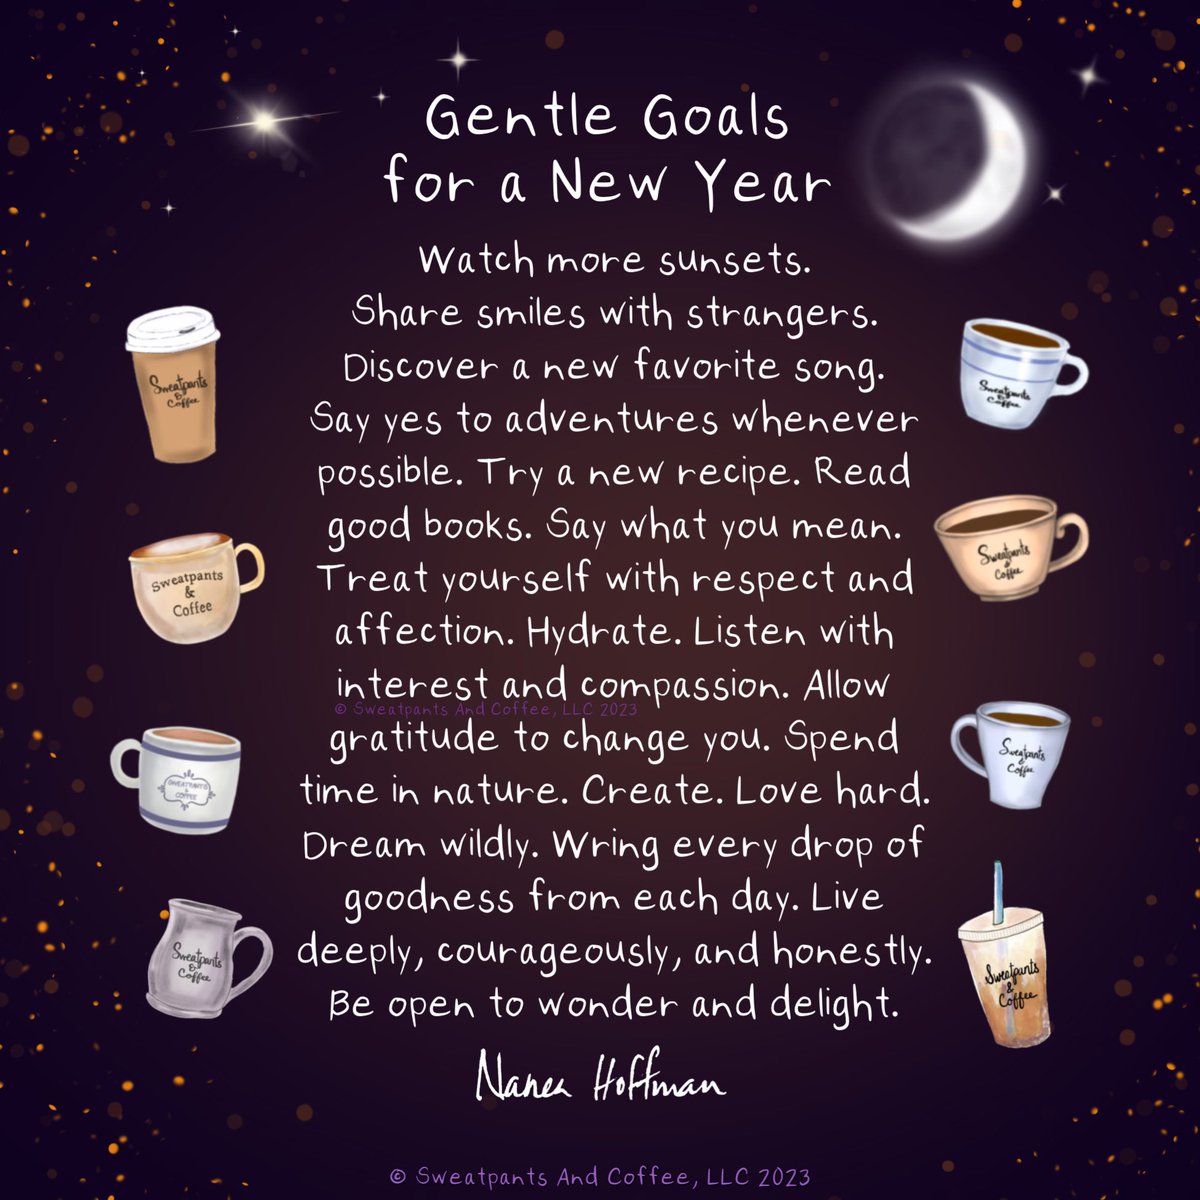 Gentle Goals
for a New Year
Watch more sunsets.
Share smiles with strangers.
Discover a new favorite song.
Say yes to adventures whenever
possible. Try a new recipe. Read
good books. Say what you mean.
Treat yourself with respect and
affection. Hydrate. Listen with
interest and compassion. Allow
© Sweatpants And Coffee, LLC 2023
gratitude to change you. Spend
time in nature. Create. Love hard.
Dream wildly. Wring every drop of
goodness from each day. Live
deeply, courageously, and honestly.
Be open to wonder and delight.
Nanea Hoffman
© Sweatpants And Coffee, LLC 2023
Sweatpants
&
Coffee
Sweatpants
&
Coffee
SWEATPANTS
&
COFFEE
Sweatpants
&
Coffee
Sweatpants
&
Coffee
Sweatpants
&
Coffee
Sweatpants
&
Coffee
Sweatpants
&
Coffee